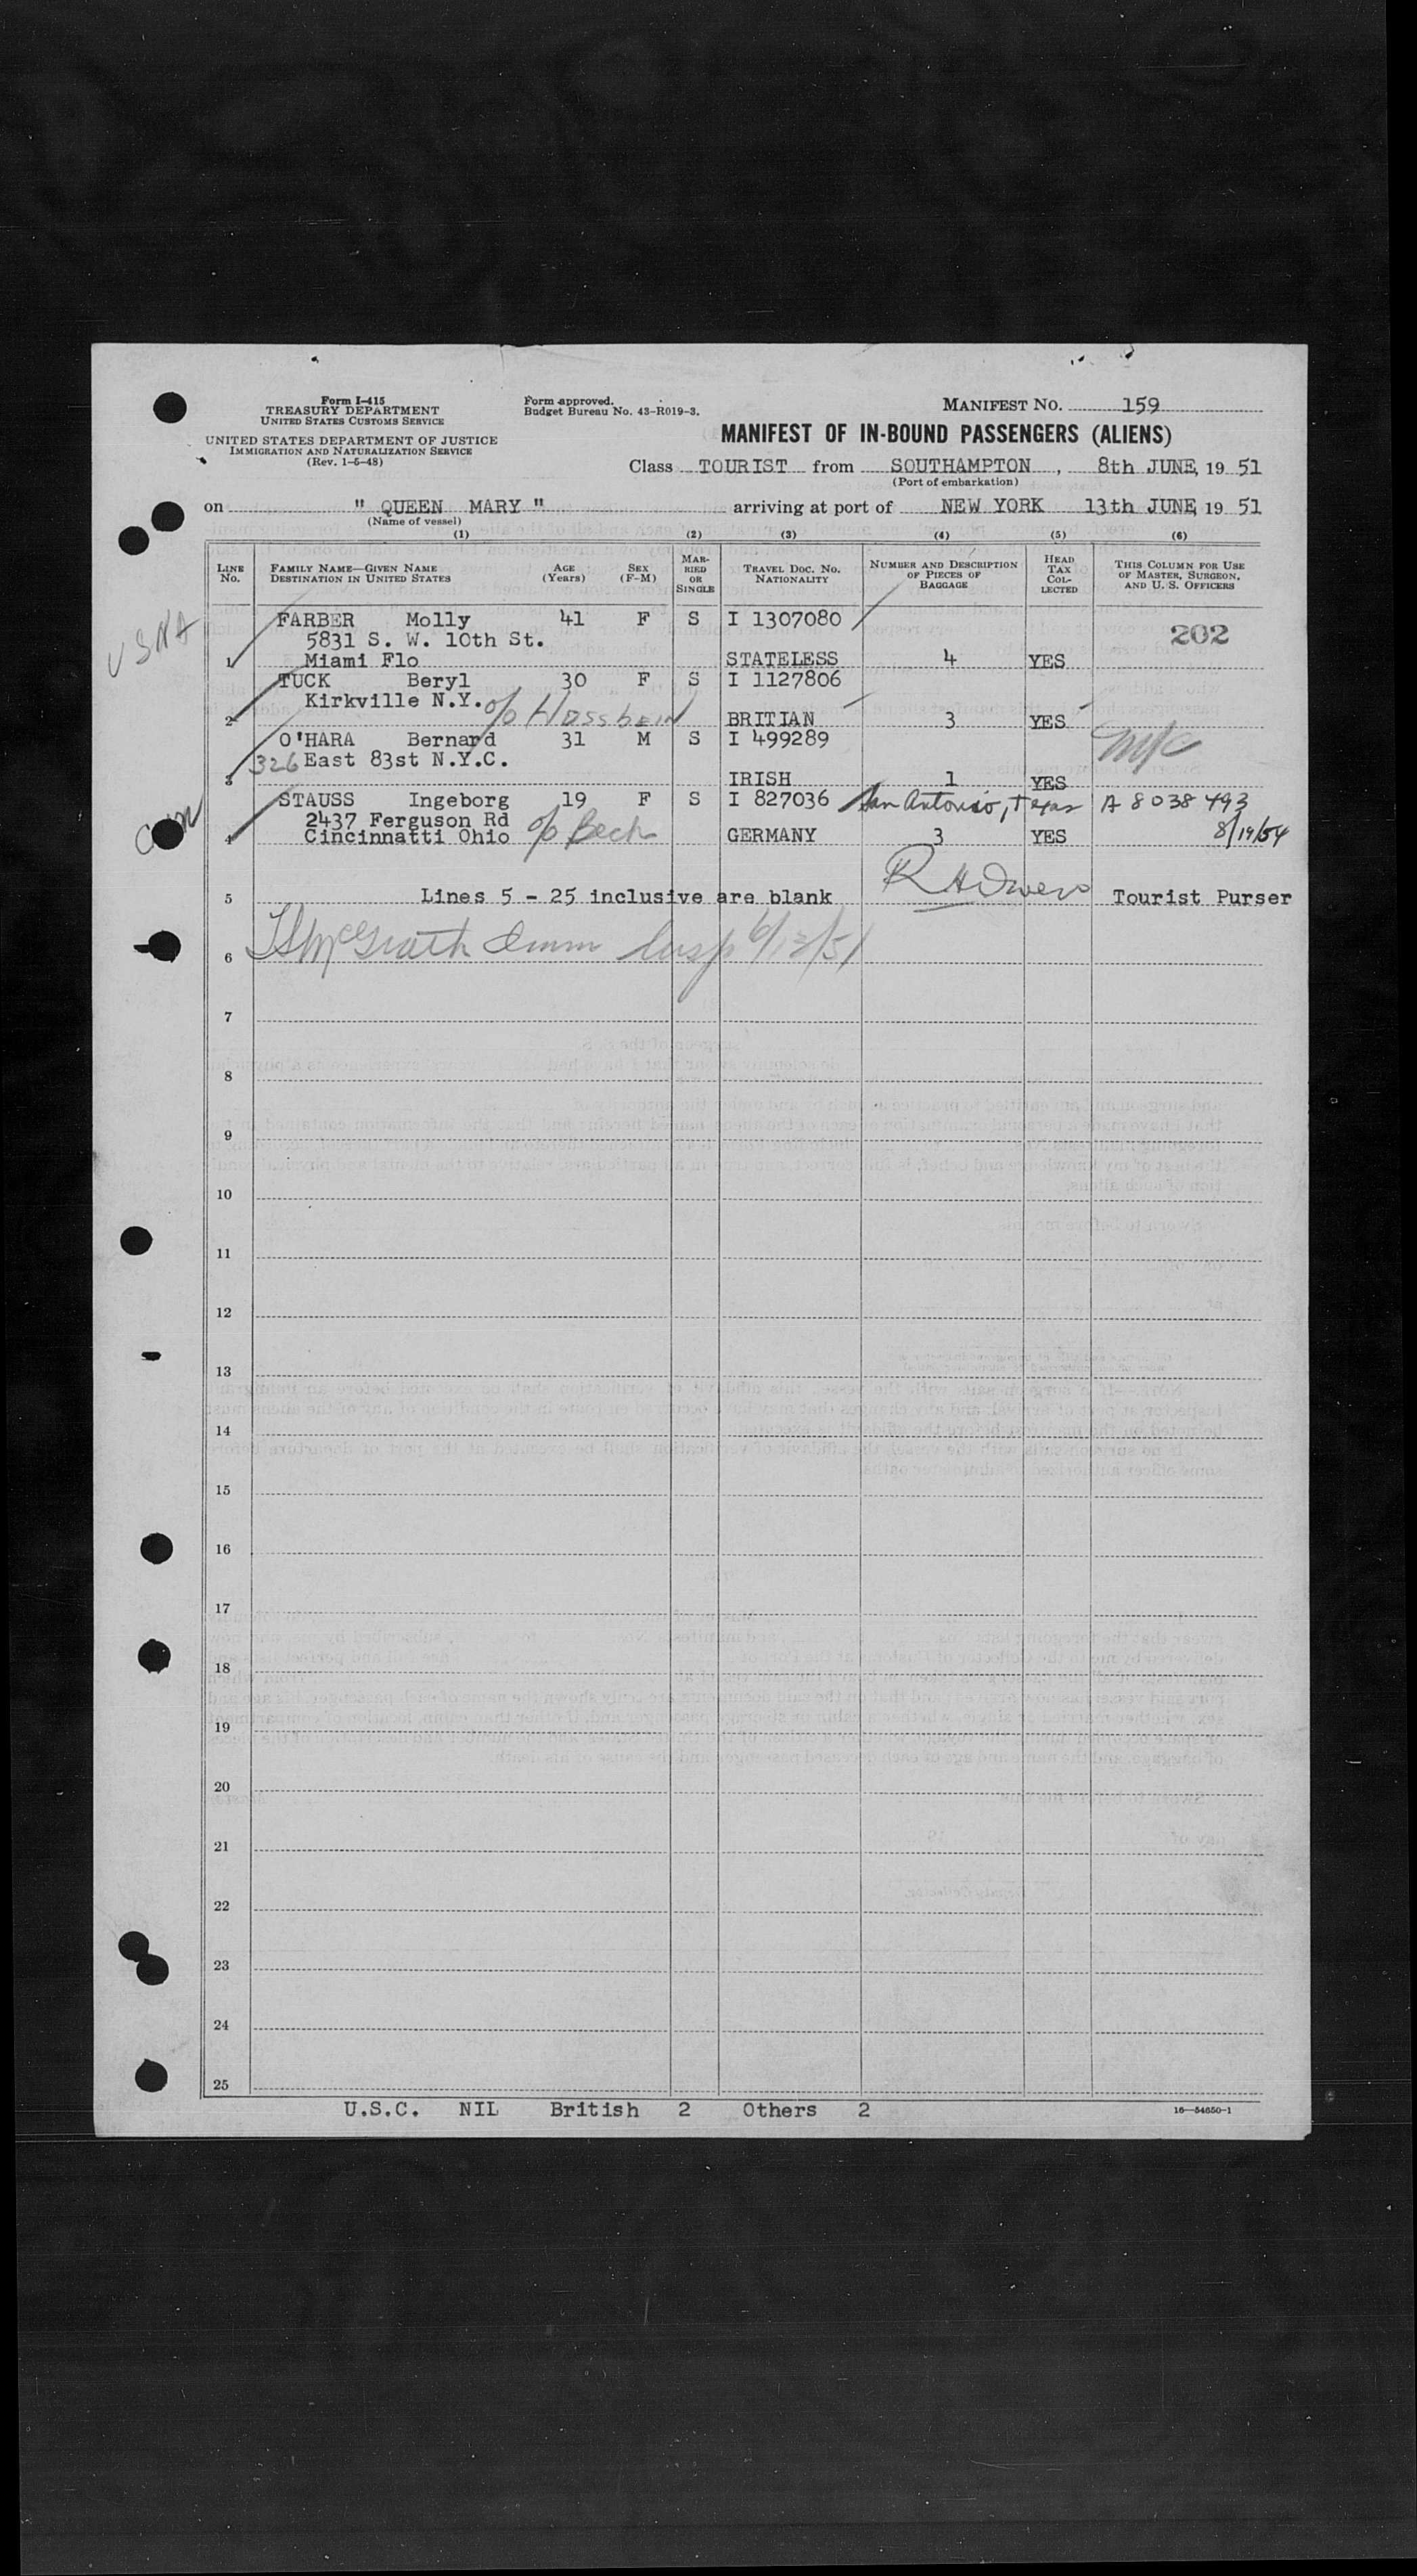 Form I-415
TREASURY DEPARTMENT
UNITED STATES CUSTOMS SERVICE
UNITED STATES DEPARTMENT OF JUSTICE
IMMIGRATION AND NATURALIZATION SERVICE
(Rev. 1-5-48)
Form approved.
Budget Bureau No. 43-R019-3.
MANIFEST NO. 159
MANIFEST OF IN-BOUND PASSENGERS (ALIENS)
Class TOURIST from SOUTHAMPTON, 8th JUNE, 19 51
(Port of embarkation)
on " QUEEN MARY " arriving at port of NEW YORK 13th JUNE, 19 51
(Name of vessel)
(1) (2) (3) (4) (5) (6)
LINE No. FAMILY NAME—GIVEN NAME DESTINATION IN UNITED STATES AGE (Years) SEX (F-M) MARRIED OR SINGLE TRAVEL DOC. NO. NATIONALITY NUMBER AND DESCRIPTION OF PIECES OF BAGGAGE HEAD TAX COLLECTED THIS COLUMN FOR USE OF MASTER, SURGEON, AND U. S. OFFICERS
USNA
FARBER Molly 41 F S I 1307080
5831 S. W. 10th St. 202
1 Miami Flo STATELESS 4 YES
TUCK Beryl 30 F S I 1127806
Kirkville N.Y. c/o Hossbein
2 BRITIAN 3 YES
O'HARA Bernard 31 M S I 499289
326 East 83st N.Y.C.
3 IRISH 1 YES
STAUSS Ingeborg 19 F S I 827036 San Antonio, Texas A 8038 493
2437 Ferguson Rd c/o Beck
4 Cincinnatti Ohio GERMANY 3 YES 8/19/54
5 Lines 5 - 25 inclusive are blank R H Owens Tourist Purser
6 McGrath Imm Insp 6/13/51
7
8
9
10
11
12
13
14
15
16
17
18
19
20
21
22
23
24
25
U.S.C. NIL British 2 Others 2
16—54650-1